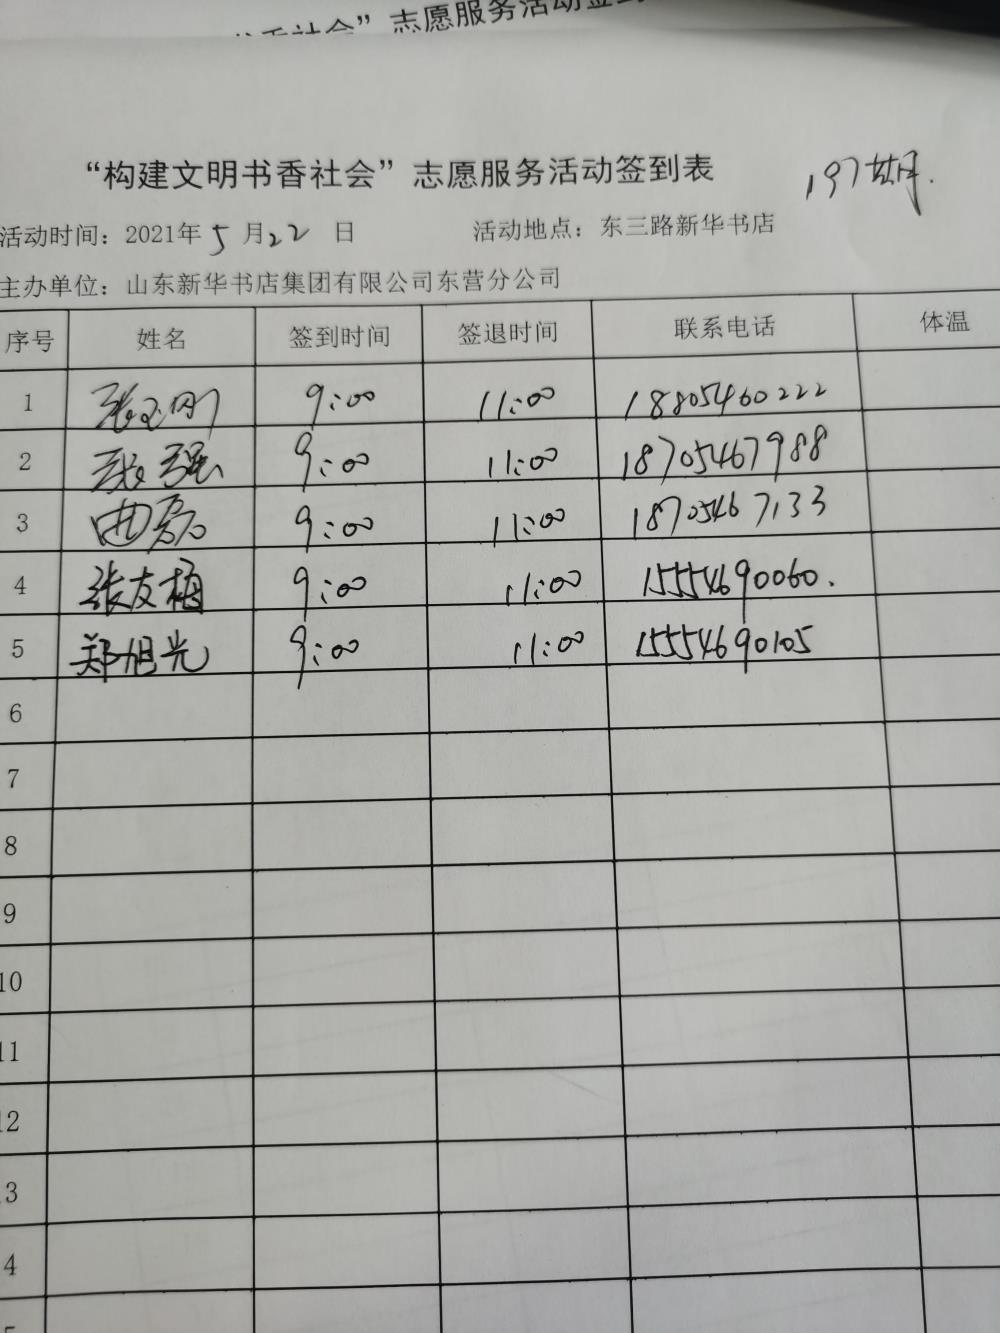 志愿服务活动签到
“构建文明书香社会”志愿服务活动签到表
197期.
活动时间：2021年5月22日 活动地点：东三路新华书店
主办单位：山东新华书店集团有限公司东营分公司
序号 姓名 签到时间 签退时间 联系电话 体温
1 张玉刚 9:00 11:00 18805460222
2 张强 9:00 11:00 18705467988
3 曲磊 9:00 11:00 18705467133
4 张友梅 9:00 11:00 15554690060.
5 郑旭光 9:00 11:00 15554690105
6
7
8
9
10
11
12
3
4